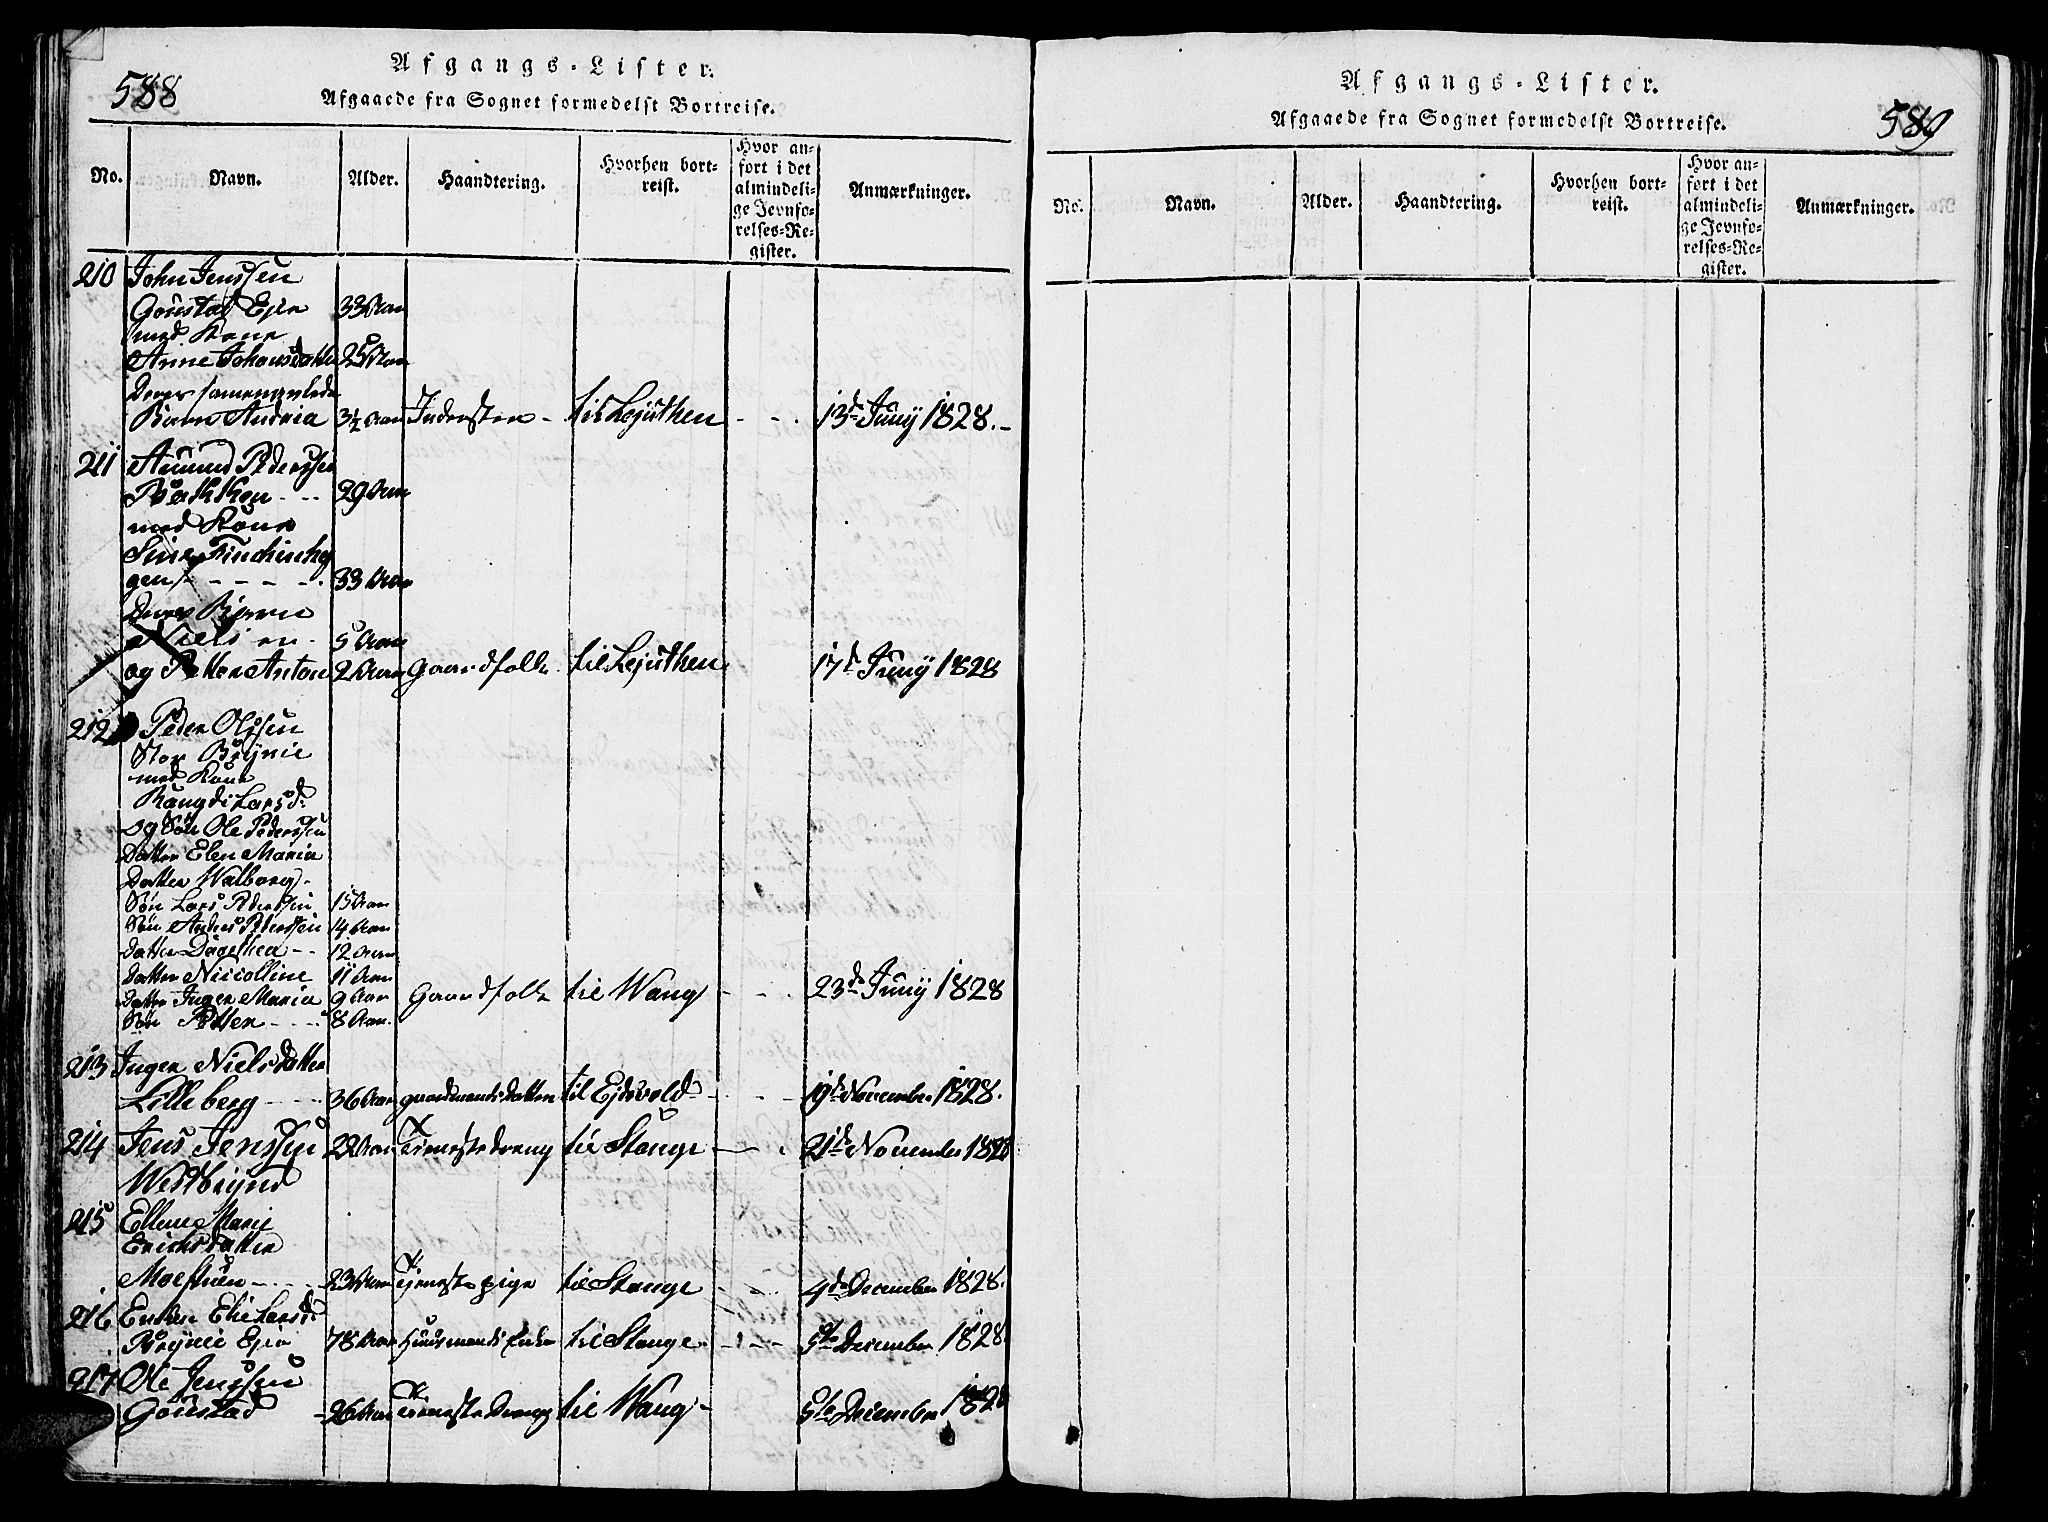 588
Afgangs-Lister.
Afgaaede fra Sognet formedelst Bortreise.
No.
Navn.
Alder.
Haandtering.
Hvorhen bort-
reist.
Hvor an-
ført i det
almindeli-
ge Jevnfø-
relses-Re-
gister.
Anmærkninger.
210 John Jenssen
Goustad Ejer 33 Aar
med Kone
Anne Johansdatter 25 Aar
Deres
Barn Andrea 3½ Aar Inderster til Løjthen 13de Juny 1828.
211 Amund Pederssen
Bakken 29 Aar
med Kone
33 Aar
deres Børn
Niels 5 Aar
og Petter Anton 2 Aar Gaardfolk til Løjthen 17de Juny 1828
212 Peder Olssen
Stor Brynie
med Kone
Rangdi Larsd:
og Søn Ole Pederssen
Datter Elen Maria
Datter Walborg
Søn Lars Pederssen 15 Aar
Søn Anders Pederssen 14 Aar
datter Dägethea 12 Aar
datter Nicolline 11 Aar
datter Inger Maria 9 Aar Gaardfolk til Wang 23de Juny 1828
Søn Petter 8 Aar
213 Inger Nielsdatter
Lilleberg 36 Aar gaardmandsdatter til Ejdsvold 19de November 1828.
214 Jens Jenssen 22 Aar Tieneste dreng til Stange 21de November 1828
Westbrynd
215 Ellene Marie
Erichsdatter
Moestuen 23 Aar Tjeneste pige til Stange 4de December 1828.
216 Enken Eli Larsd:
Brynie Ejer 78 Aar Huusmands Enke til Stange 5te December 1828
217 Ole Jenssen
Goustad 26 Aar Tieneste Dreng til Wang 5te December 1828
Afgangs-Lister.
Afgaaede fra Sognet formedelst Bortreise.
589
No.
Navn.
Alder.
Haandtering.
Hvorhen bort-
reist.
Hvor an-
ført i det
almindeli-
ge Jevnfø-
relses-Re-
gister.
Anmærkninger.